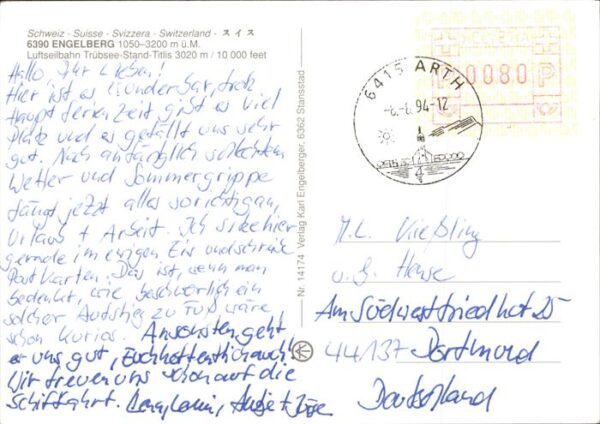 Schweiz - Suisse - Svizzera - Switzerland - スイス
6390 ENGELBERG 1050–3200 m ü.M.
Luftseilbahn Trübsee-Stand-Titlis 3020 m / 10 000 feet
Hallo, Ihr Lieben!
Hier ist es wunderbar, trotz
Hauptferienzeit gibt es viel
Platz und es gefällt uns sehr
gut. Nach anfänglich schlechtem
Wetter und Sommergrippe
fängt jetzt alles so richtig an,
Urlaub + Arbeit. Ich sitze hier
gerade im ewigen Eis und schreibe
Postkarten. Das ist, wenn man
bedenkt, wie beschwerlich ein
solcher Aufstieg zu Fuß wäre
schon kurios. Ansonsten geht
es uns gut, Euch hoffentlich auch!
Wir freuen uns schon auf die
Schiffahrt.
Nr. 14174 Verlag Karl Engelberger, 6362 Stansstad
HELVETIA
P 0080 P
6415 ARTH
94-12
M.L. Kießling
u. G. Hense
Am Südwestfriedhof 25
44137 Dortmund
Deutschland